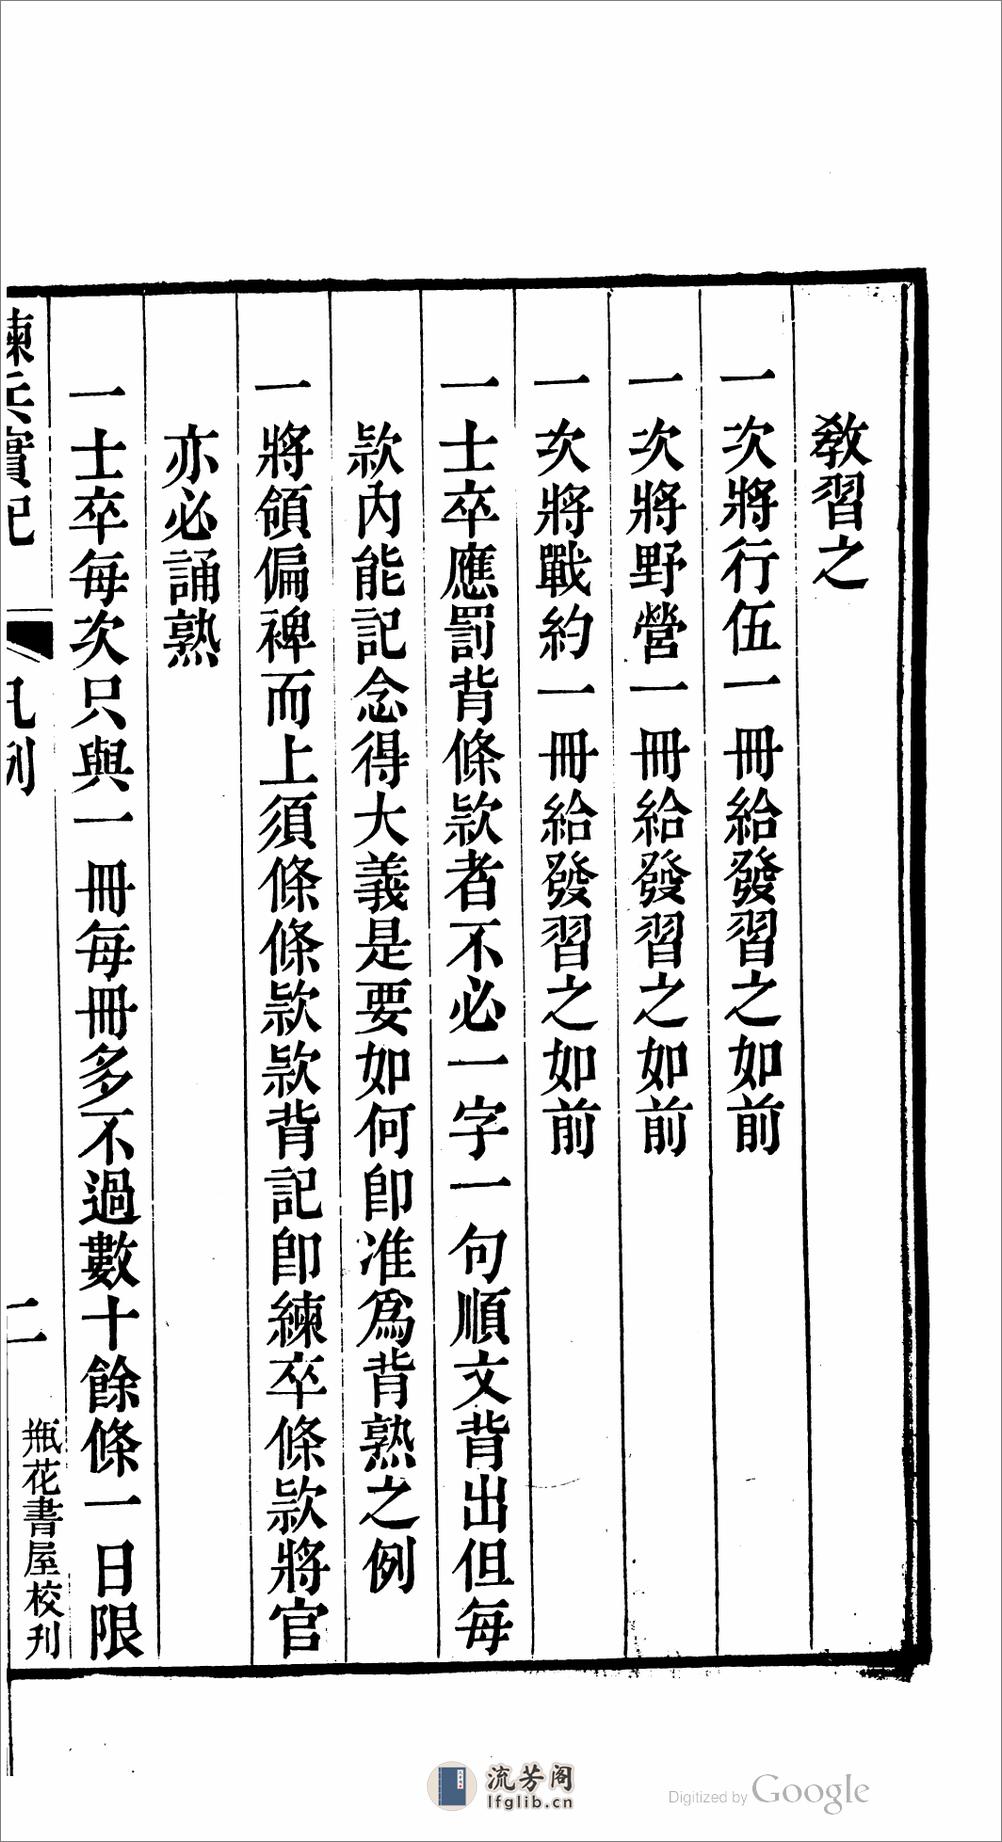 敎習之
一次將行伍一冊給發習之如前
一次將野營一冊給發習之如前
一次將戰約一冊給發習之如前
一士卒應罰背條款者不必一字一句順文背出但每
款內能記念得大義是要如何卽准爲背熟之例
一將領偏裨而上須條條款款背記卽練卒條款將官
亦必誦熟
一士卒每次只與一冊每冊多不過數十餘條一日限
練兵實紀 凡例 二 瓶花書屋校刋
流芳阁
lfglib.cn
Digitized by Google